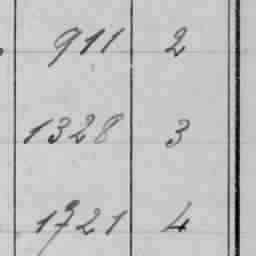 911 2
1328 3
1721 4